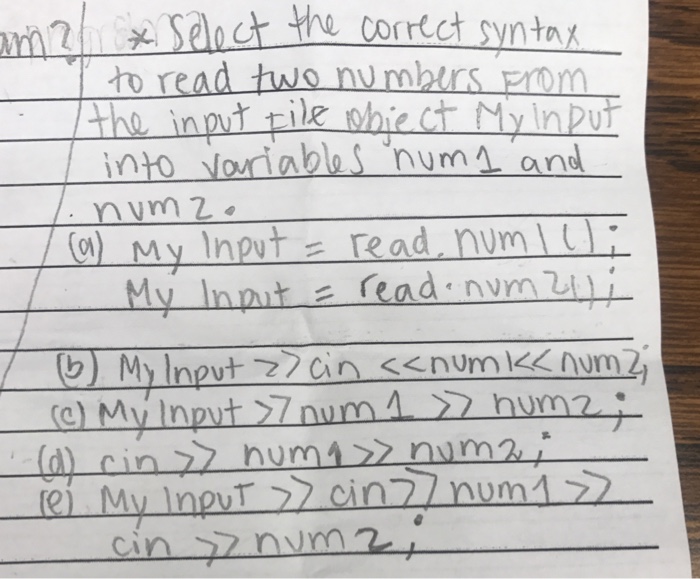 am2 * Select the correct syntax
to read two numbers From
the input File object My Input
into variables num1 and
num2.
(a) My Input = read.num1();
My Input = read.num2();
(b) My Input >> cin <<num1<< num2;
(c) My Input >> num1 >> num2;
(d) cin >> num1 >> num2;
(e) My Input >> cin >> num1 >>
cin >> num2;